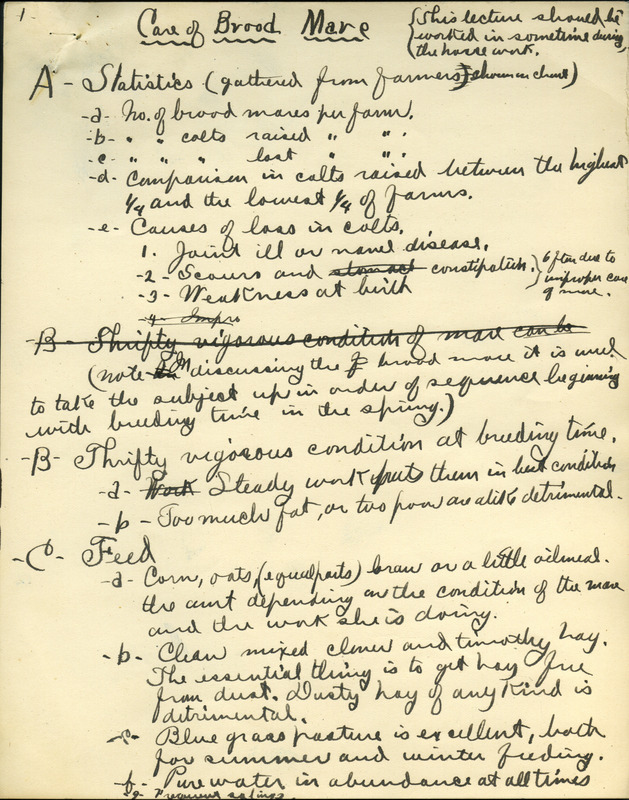 1
Care of Brood Mare
{This lecture should be
worked in sometime during
the horse work.
A - Statistics (gathered from farmers) shown on chart)
-a- No. of brood mares per farm.
-b- " " colts raised " ".
-c- " " " lost " ".
-d- Comparison in colts raised between the highest
1/4 and the lowest 1/4 of farms.
-e- Causes of loss in colts.
1. Joint ill or navel disease.
-2- Scours and stomact constipation. } Often due to
improper care
of mare.
-3- Weakness at birth
-4- Impro
-B- Thrifty vigorous condition of mare can be
(note - In discussing the brood mare it is well
to take the subject up in order of sequence beginning
with breeding time in the spring.)
-B- Thrifty vigorous condition at breeding time.
-a- Work Steady work puts them in best condition
-b- Too much fat, or two poor are alike detrimental.
-C- Feed
-a- Corn, oats, (equal parts) bran or a little oilmeal.
the amt depending on the condition of the mare
and the work she is doing.
-b- Clean mixed clover and timothy hay.
The essential thing is to get hay free
from dust. Dusty hay of any kind is
detrimental.
-c- Blue grass pasture is excellent, both
for summer and winter feeding.
-f- Pure water in abundance at all times
-g- Frequent saltings.